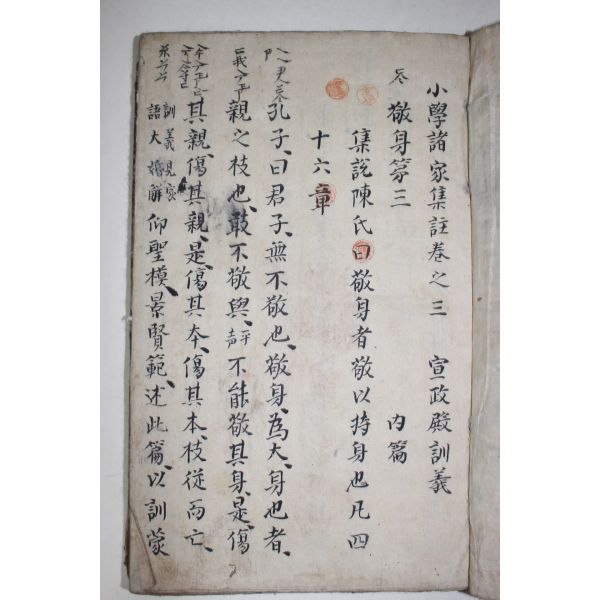 小學諸家集註卷之三 宣政殿訓義
敬身第三 內篇
集說陳氏曰敬身者敬以持身也凡四
十六章
孔子曰君子無不敬也敬身為大身也者
親之枝也敢不敬與平聲不能敬其身是傷
其親傷其親是傷其本傷其本枝從而亡
訓義見家
語大婚解
仰聖模景賢範述此篇以訓蒙